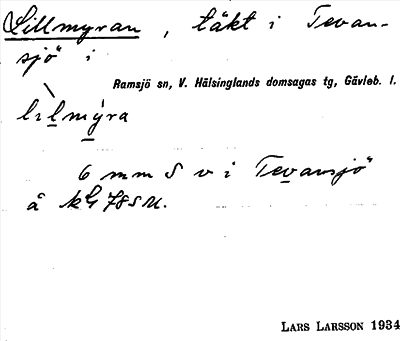 Lillmyran, täkt i Tevan-
sjö i
Ramsjö sn, V. Hälsinglands domsagas tg, Gävleb. l.
lılmýra
6 mm S v i Tevansjö
å kG 78 SU.
LARS LARSSON 1934